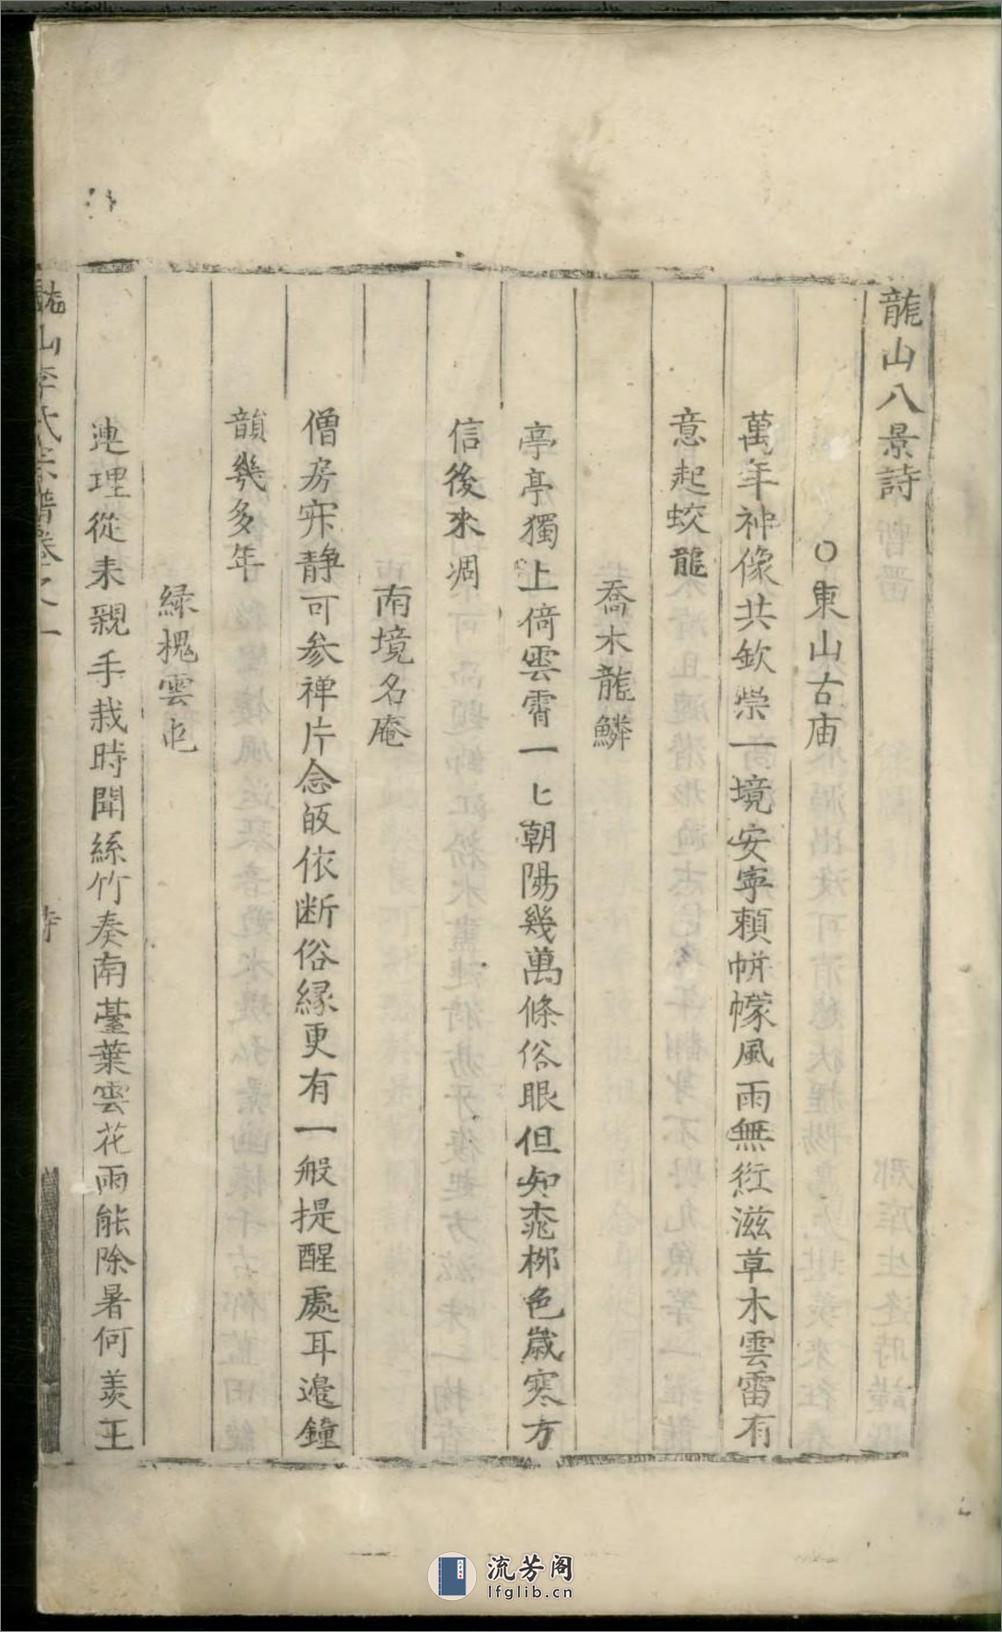 龍山八景詩
○東山古庙
萬年神像共欽崇一境安寧頼帡幪風雨無愆滋草木雲雷有
意起蛟龍
喬木龍鱗
亭亭獨上倚雲霄一匕朝陽幾萬條俗眼但知桃栁色歳寒方
信後來凋
南境名庵
僧房宋静可参禅片念皈依断俗縁更有一般提醒處耳邉鐘
韻幾多年
緑槐雲屯
連理從来親手栽時聞絲竹奏南臺葉雲花雨能除暑何羨王
龍山李氏宗譜卷之一
詩
流芳阁
lfglib.cn